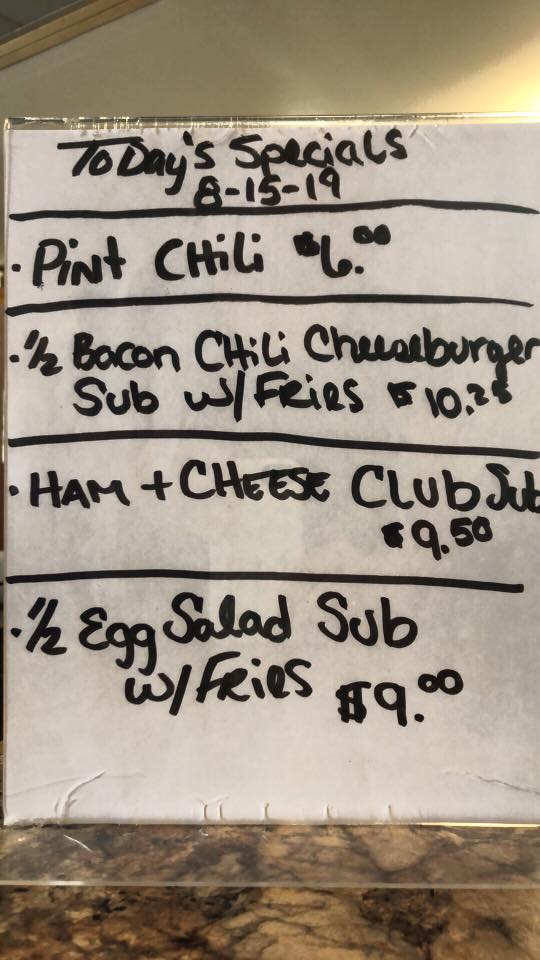 Today's Specials
8-15-19
· Pint Chili $6.00
· 1/2 Bacon Chili Cheeseburger
Sub w/ Fries $10.25
· HAM + CHEESE Club Sub
$9.50
· 1/2 Egg Salad Sub
w/ Fries $9.00